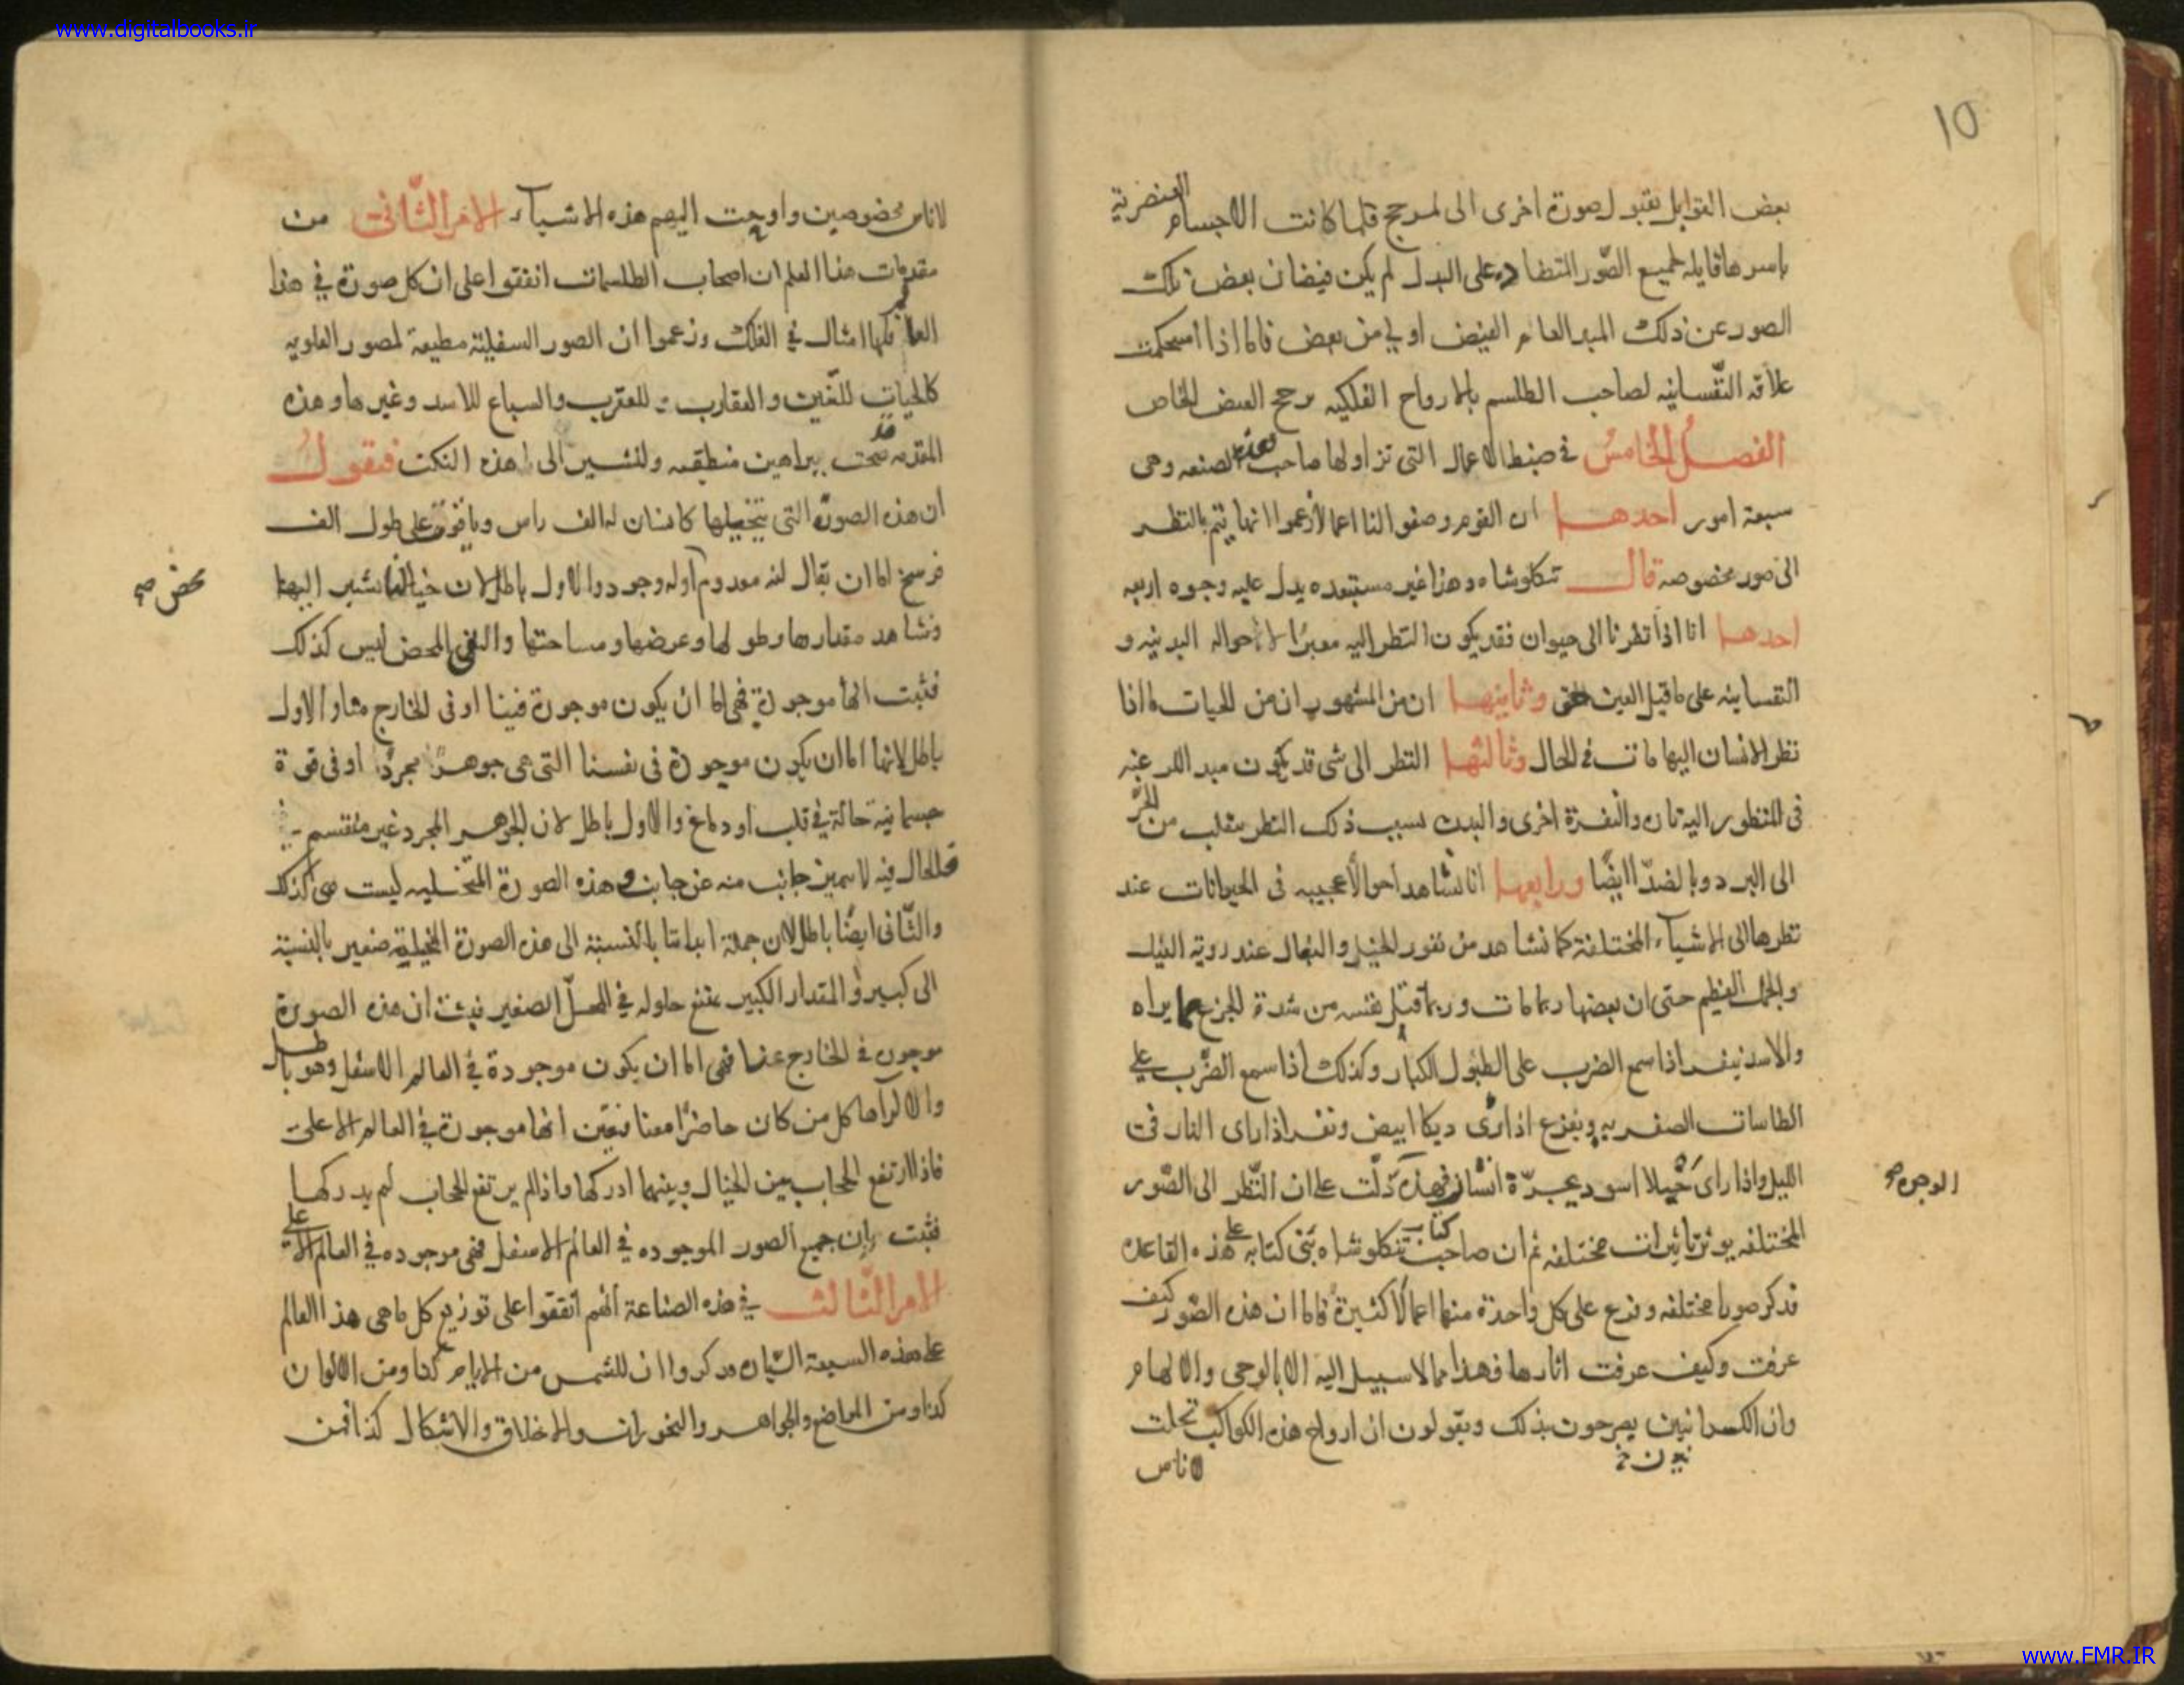 www.digitalbooks.ir
١٥
بعض القوابل بقبول صورة اخرى الى لمرجح فلما كانت الاجسام العنصرية
باسرها قابله لجميع الصّور المتضاده على البدل لم يكن فيضان بعض تلك
الصور عن ذلك المبد العام الفيض اولى من بعض فاما اذا استحكمت
علاقه النّفسانيه لصاحب الطلسم بالارواح الفلكيه رجح الفيض الخاص
الفصل الخامس فى ضبط الاعمال التى تزاولها صاحب هذه الصنعه وهى
سبعة امور احدهـا ان القوم وصفوا لنا اعمالا زعموا انها يتم بالنظر
الى صور مخصوصه قال تنكلوشاه وهذا غير مستبعده يدل عليه وجوه اربعه
احدها انا اذا نظرنا الى حيوان فقد يكون النظر اليه مغيرًا لاحواله البدنيه و
النفسانيه على ما قيل العين حق وثانيهـا ان من المشهور ان من الحيات ما اذا
نظر الانسان اليها مات فى الحال وثالثهـا النظر الى شى قد يكون مبد الرغبه
فى المنظور اليه تارة والنفرة اخرى والبدن بسبب ذلك النظر ينقلب من الحرّ
الى البرد وبالضدّ ايضًا ورابعها انا نشاهد احوالًا عجيبه فى الحيوانات عند
نظرها الى الاشياء المختلفة كما نشاهد من نفور الخيل والبغال عند روية الفيل
والجمل العظيم حتى ان بعضها ربما مات وربما قتل نفسه من شدة الجزع مما يراه
والاسد ينفر اذا سمع الضرب على الطبول الكبار وكذلك اذا سمع الضّرب على
الطاسات الصفريه ويفزع اذا رى ديكا ابيض ونفر اذا راى النار فى
الليل واذا راى اسود انسان فهذه الوجوه دلّت على ان النّظر الى الصّور
المختلفه يوثر تاثيرات مختلفه ثم ان صاحب كتاب تنكلوشاه بنى كتابه على هذه القاعدة
فذكر صورا مختلفه وفرع على كل واحدة منها اعمالًا كثيرة فاما ان هذه الصّور كيف
عرفت وكيف عرفت اثارها فهذا مما لاسبيل اليه الا بالوحى والالهام
وان الكسدانيين يصرحون بذلك ويقولون ان ارواح هذه الكواكب تجلت
لاناس
لاناس مخصوصين واوحت اليهم هذه الاشياء الامر الثّانى من
مقدمات هذا العلم ان اصحاب الطلسمات اتفقوا على ان كل صورة فى هذا
العالم فلها امثال فى الفلك وزعموا ان الصور السفليّة مطيعة للصور العلويه
كالحيات للتّنين والعقارب للعقرب والسباع للاسد وغيرها وهذه
المقدمه قد صحت ببراهين منطقيه ولنشير الى هذه النكت فنقول
ان هذه الصورة التى نتخيلها كانسان له الف راس وياقوتة على طول الف
فرسخ اما ان يقال انه معدوم او له وجود والاول باطل لان خيالنا نشير اليها
ونشاهد مقدارها وطولها وعرضها ومساحتها والنفى المحض ليس كذلك
محض صح
فثبت انها موجودة فهى اما ان يكون موجودة فينا او فى الخارج منا والاول
باطل لانها اما ان يكون موجودة فى نفسنا التى هى جوهر مجرد او فى قوة
جسمانية حالّة فى قلب او دماغ والاول باطل لان الجوهر المجرد غير منقسم
فالحال فيه لايميز جانب منه عن جانب وهذه الصورة المتخيليه ليست هى كذلك
والثّانى ايضًا باطل لان جملة ابداننا بالنسبة الى هذه الصورة المخيلية صغير بالنسبة
الى كبير والمقدار الكبير يمتنع حلوله فى المحلّ الصغير فثبت ان هذه الصورة
موجودة فى الخارج عنا فهى اما ان يكون موجودة فى العالم الاسفل وهو باطل
والا لراها كل من كان حاضرًا معنا فتعيّن انها موجودة فى العالم الاعلى
فاذا ارتفع الحجاب بين الخيال وبينهما ادركها واذا لم يرتفع الحجاب لم يدركها
فثبت بان جميع الصور الموجوده فى العالم الاسفل فهى موجوده فى العالم الاعلى
الامر الثّالث فى هذه الصناعة انهم اتفقوا على توزيع كل ما هى هذا العالم
على هذه السبعة السّيارة فذكروا ان للشمس من الايام كذا ومن الالوان
كذا ومن المواضع والجواهر والبخورات والاخلاق والاشكال كذا فمن
www.FMR.IR